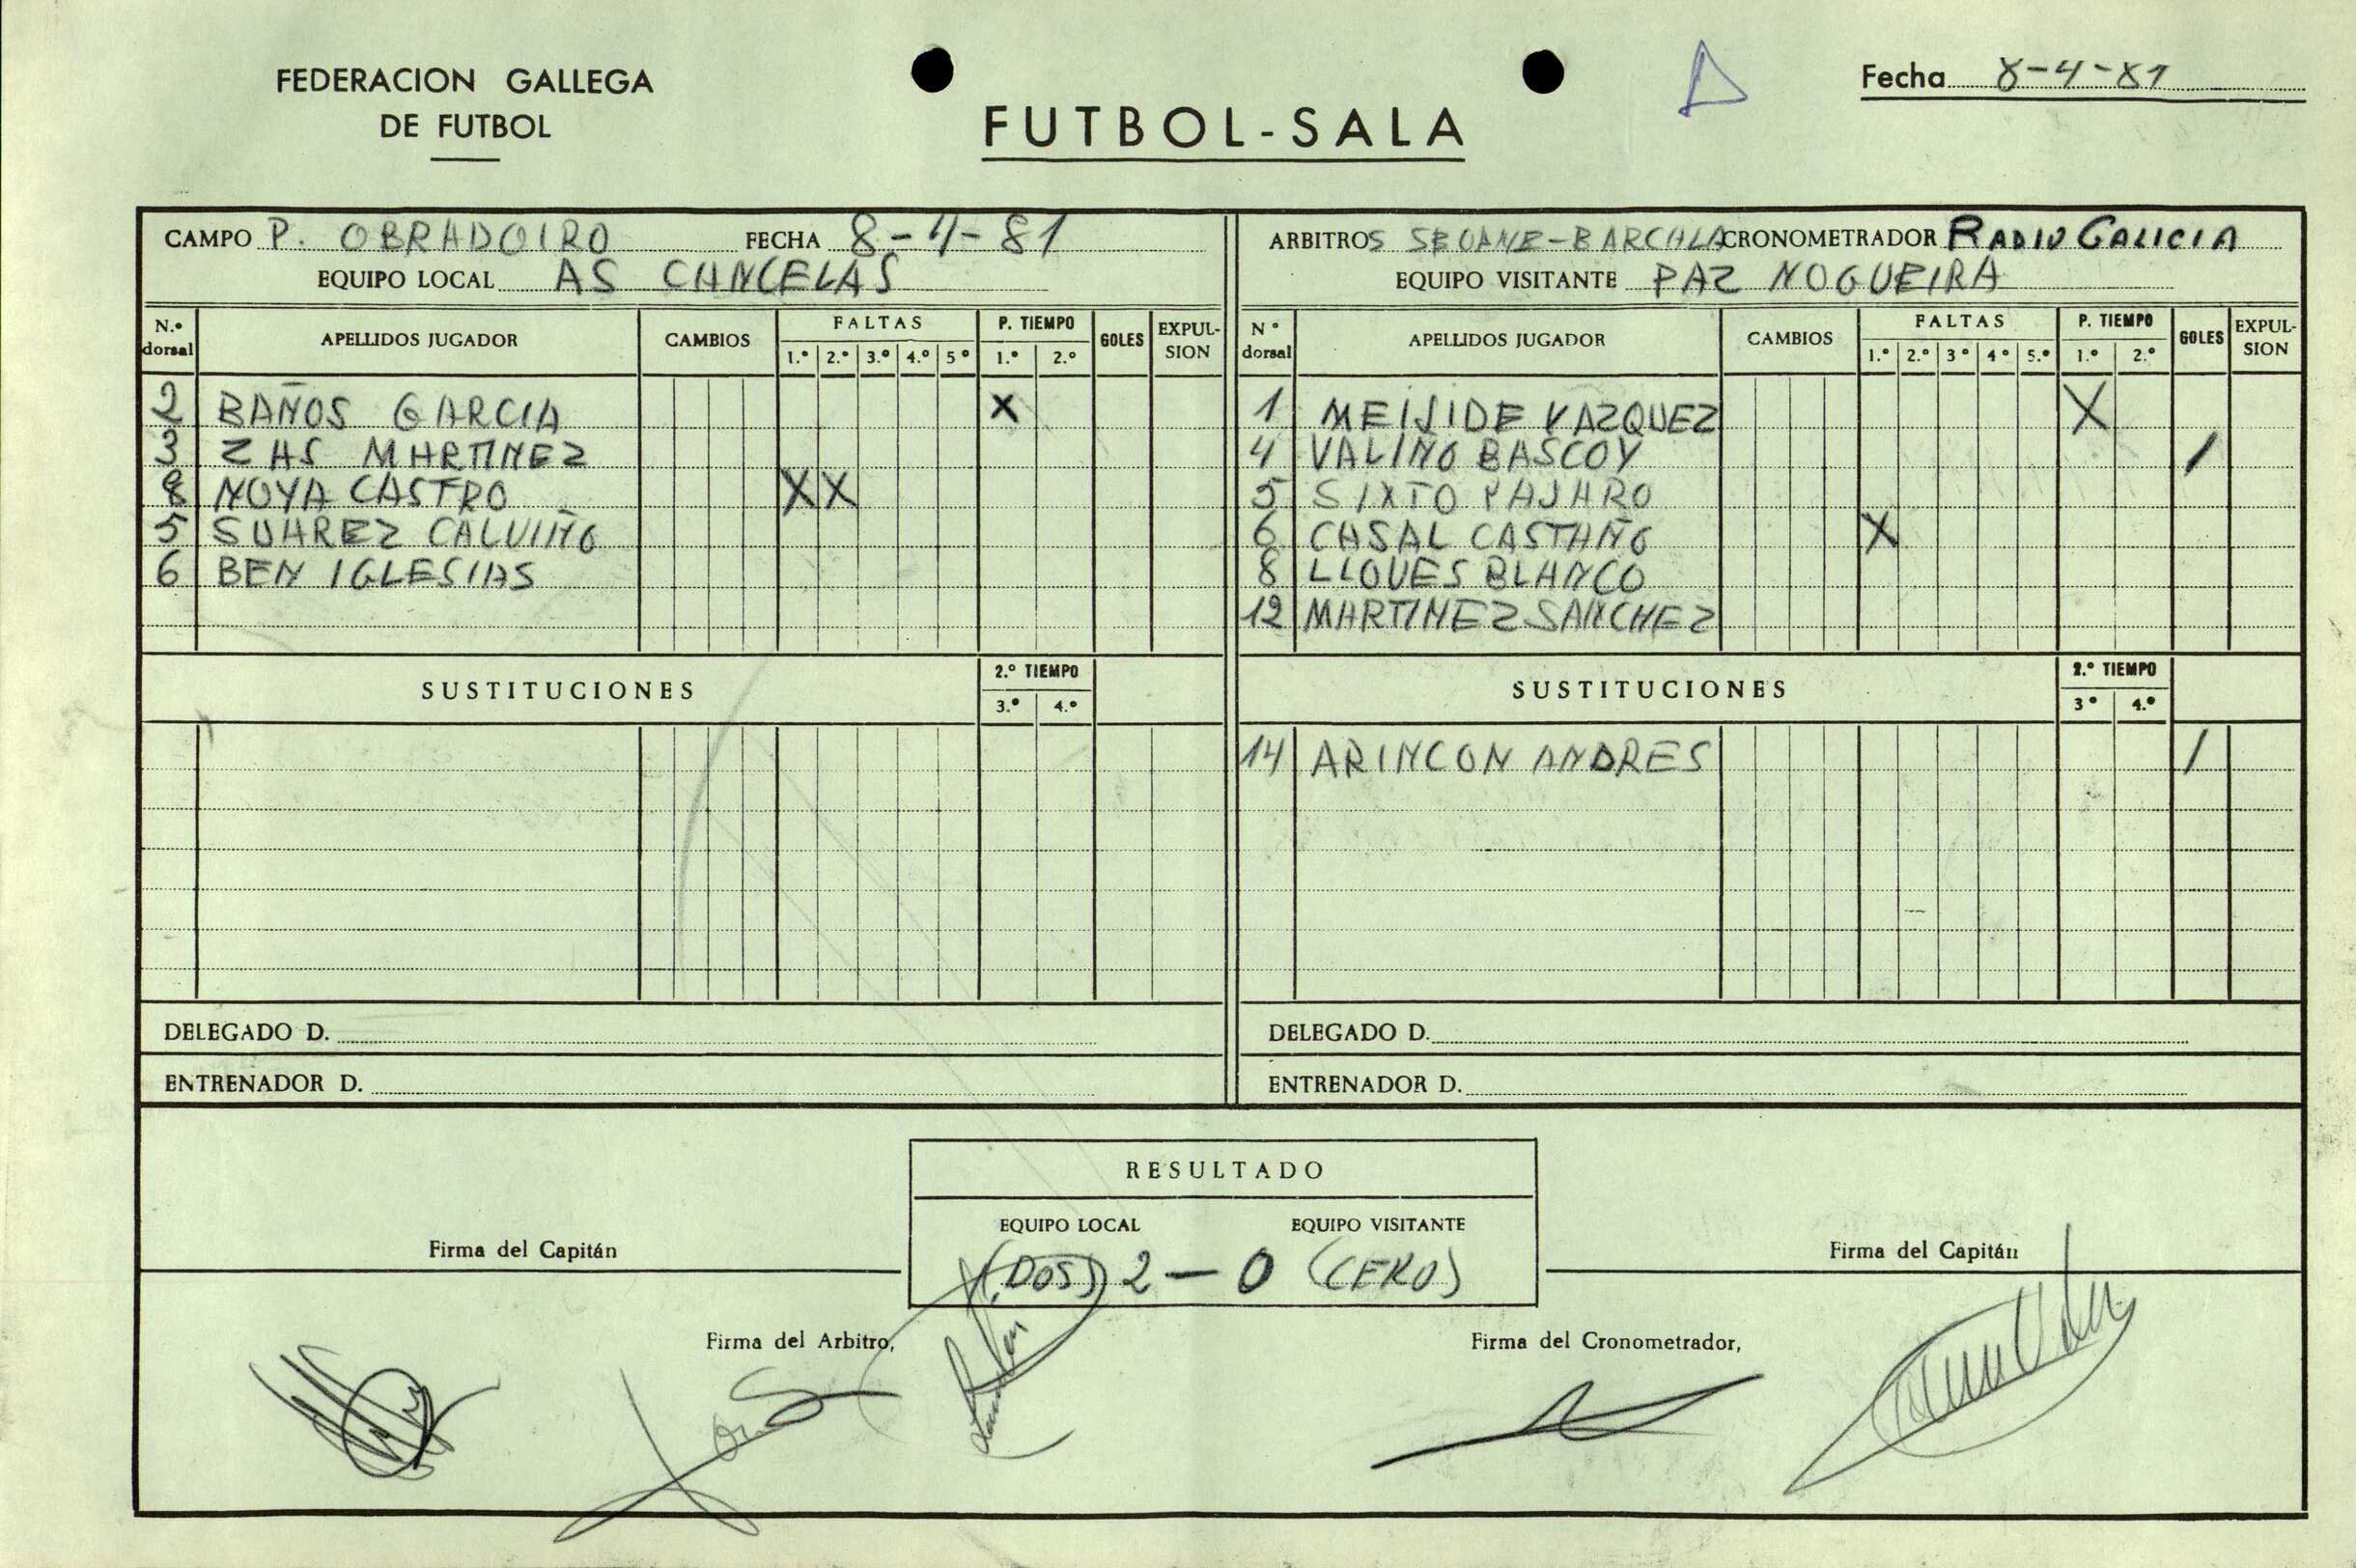 FEDERACION GALLEGA
DE FUTBOL
FUTBOL-SALA
Fecha 8-4-81
CAMPO P. OBRADOIRO FECHA 8-4-81
EQUIPO LOCAL AS CANCELAS
N.º dorsal APELLIDOS JUGADOR CAMBIOS FALTAS 1.º 2.º 3.º 4.º 5º P. TIEMPO 1.º 2.º GOLES EXPULSION
2 BAÑOS GARCIA X
3 ZAS MARTINEZ
8 NOYA CASTRO X X
5 SUAREZ CALVIÑO
6 BEN IGLESIAS
SUSTITUCIONES 2.º TIEMPO 3.º 4.º
DELEGADO D.
ENTRENADOR D.
ARBITROS SEOANE-BARCALA CRONOMETRADOR RADIO GALICIA
EQUIPO VISITANTE PAZ NOGUEIRA
Nº dorsal APELLIDOS JUGADOR CAMBIOS FALTAS 1.º 2.º 3º 4º 5.º P. TIEMPO 1.º 2.º GOLES EXPULSION
1 MEIJIDE VAZQUEZ X
4 VALIÑO BASCOY /
5 SIXTO PAJARO
6 CASAL CASTAÑO X
8 LLOVES BLANCO
12 MARTINEZ SANCHEZ
SUSTITUCIONES 2.º TIEMPO 3º 4.º
14 ARINCON ANDRES /
DELEGADO D.
ENTRENADOR D.
RESULTADO
EQUIPO LOCAL EQUIPO VISITANTE
(DOS) 2 — 0 (CERO)
Firma del Capitán
Firma del Capitán
Firma del Arbitro,
Firma del Cronometrador,